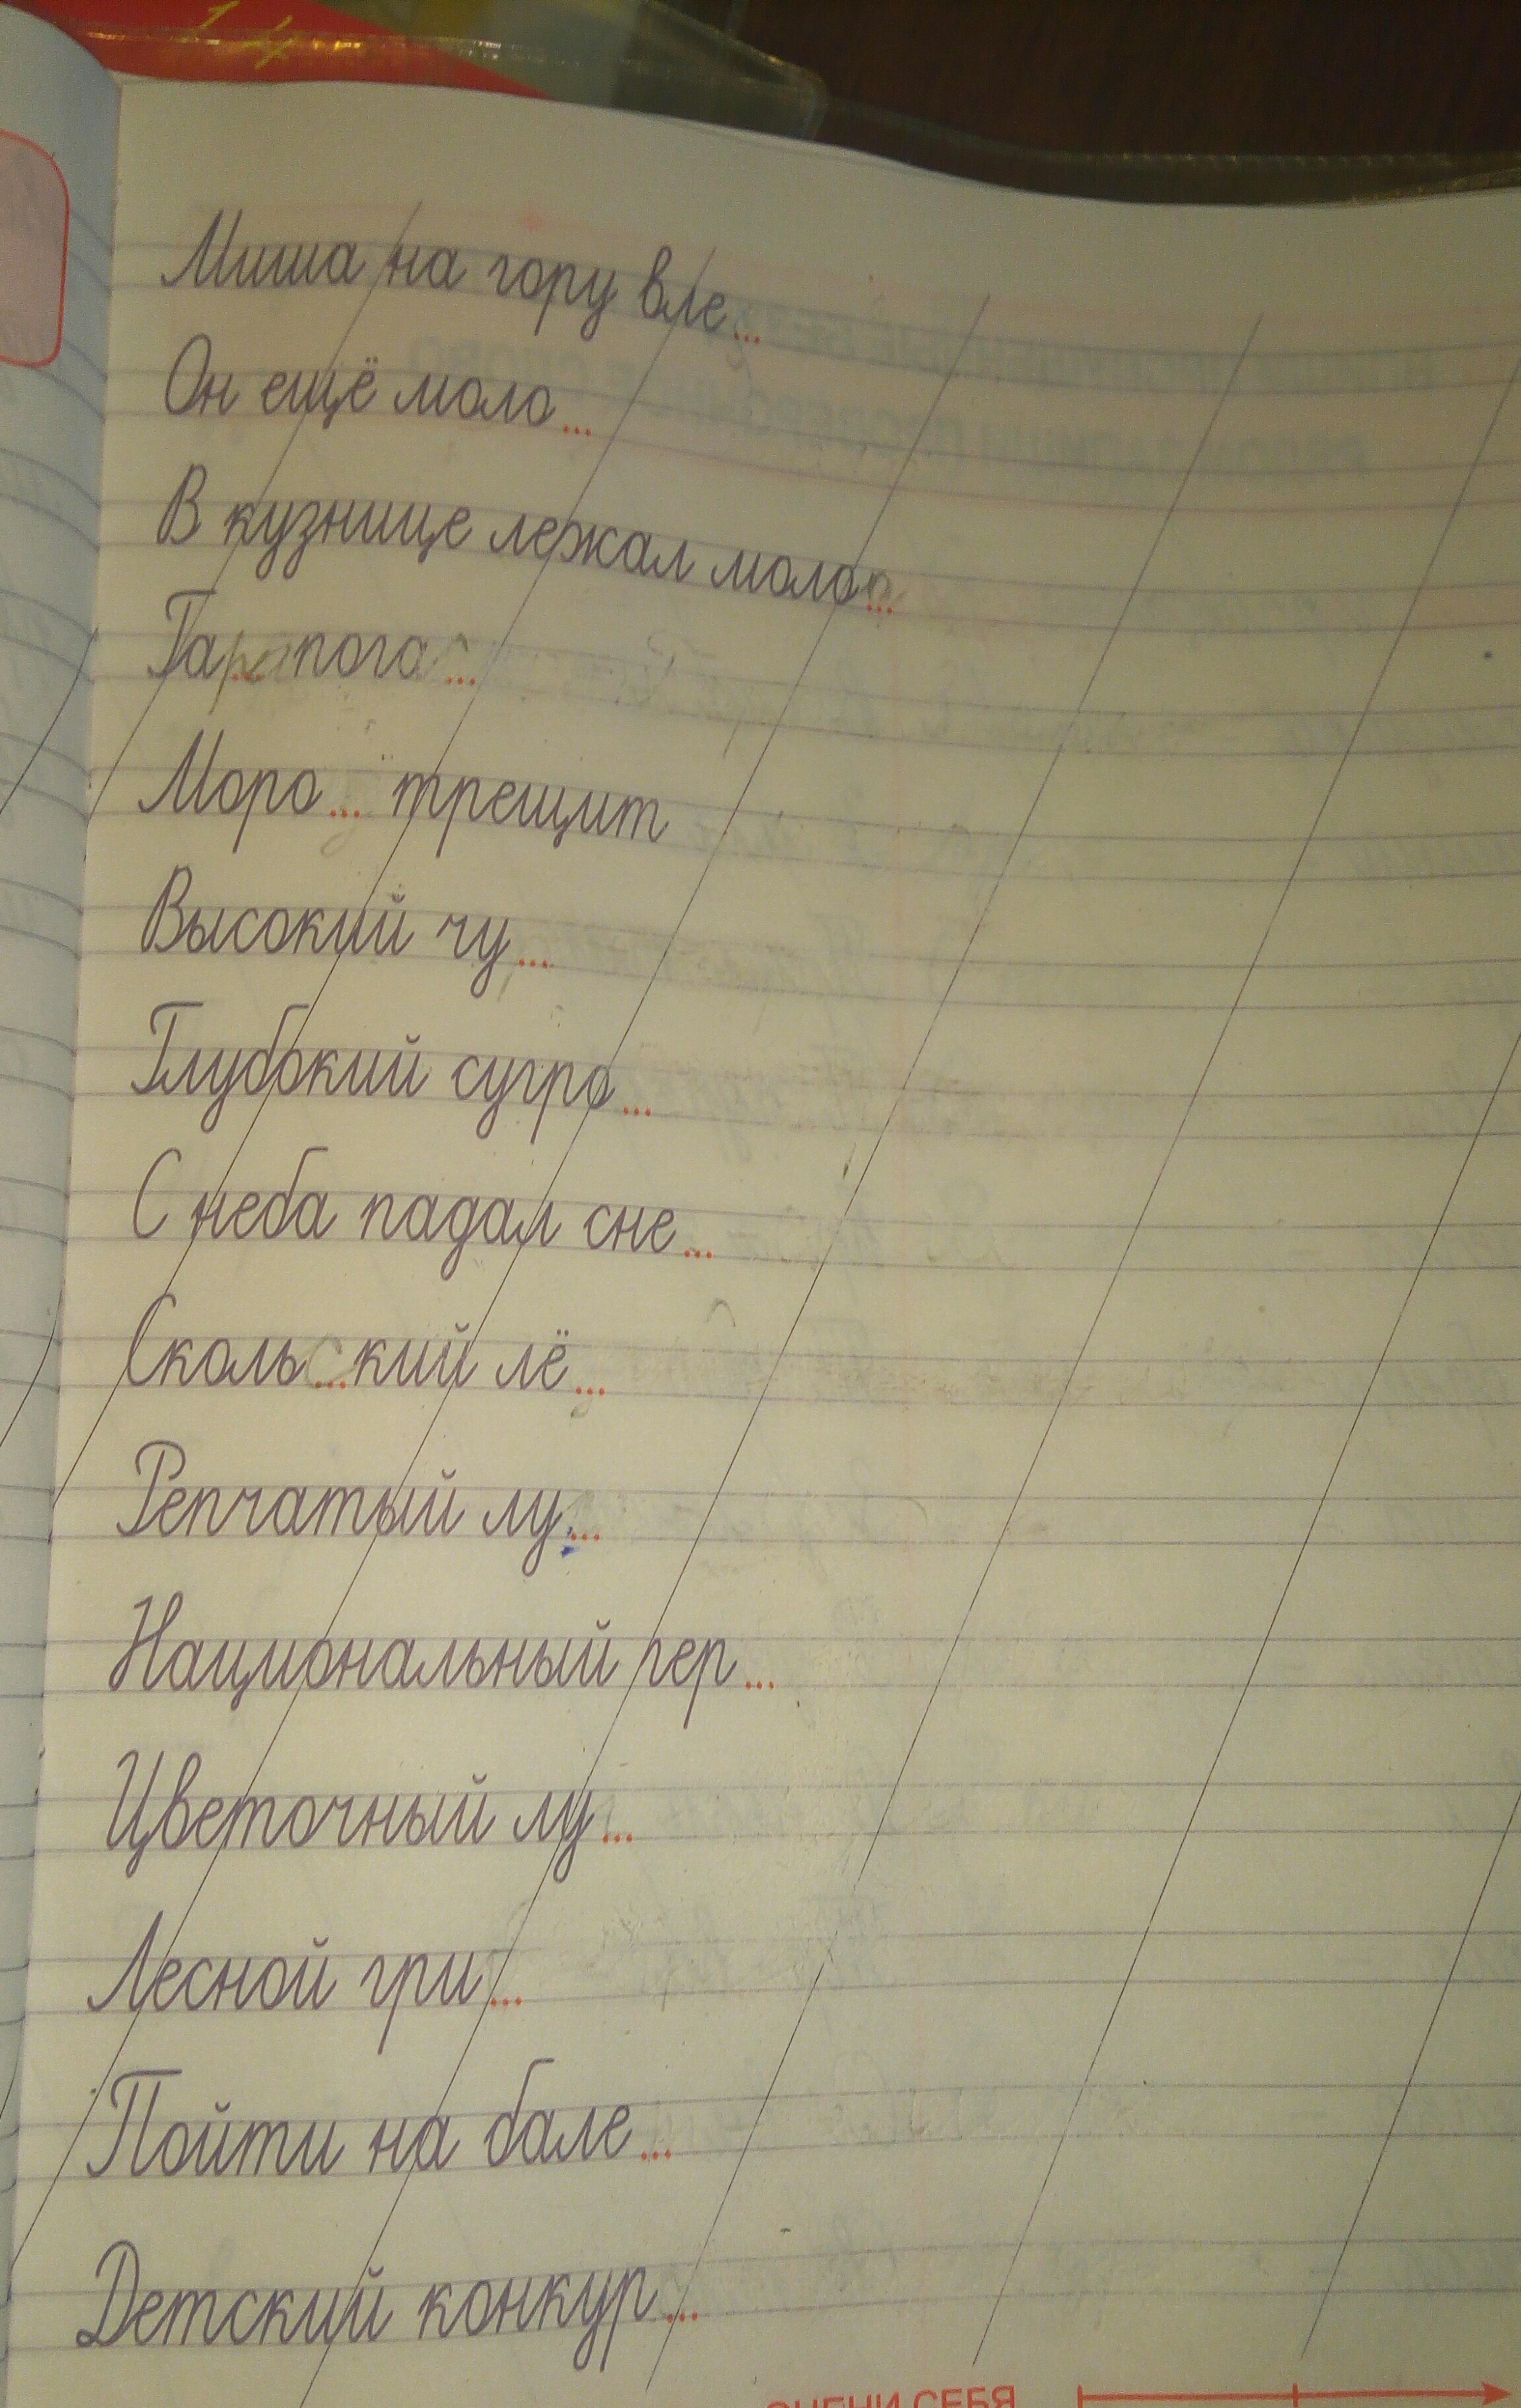 Миша на гору вле...
Он ещё моло...
В кузнице лежал моло...
Га... погас...
Моро... трещит
Высокий чу...
Глубокий сугро...
С неба падал сне...
Сколь...кий лё...
Репчатый лу...
Национальный гер...
Цветочный лу...
Лесной гри...
Пойти на бале...
Детский конкур...
ОЦЕНИ СЕБЯ